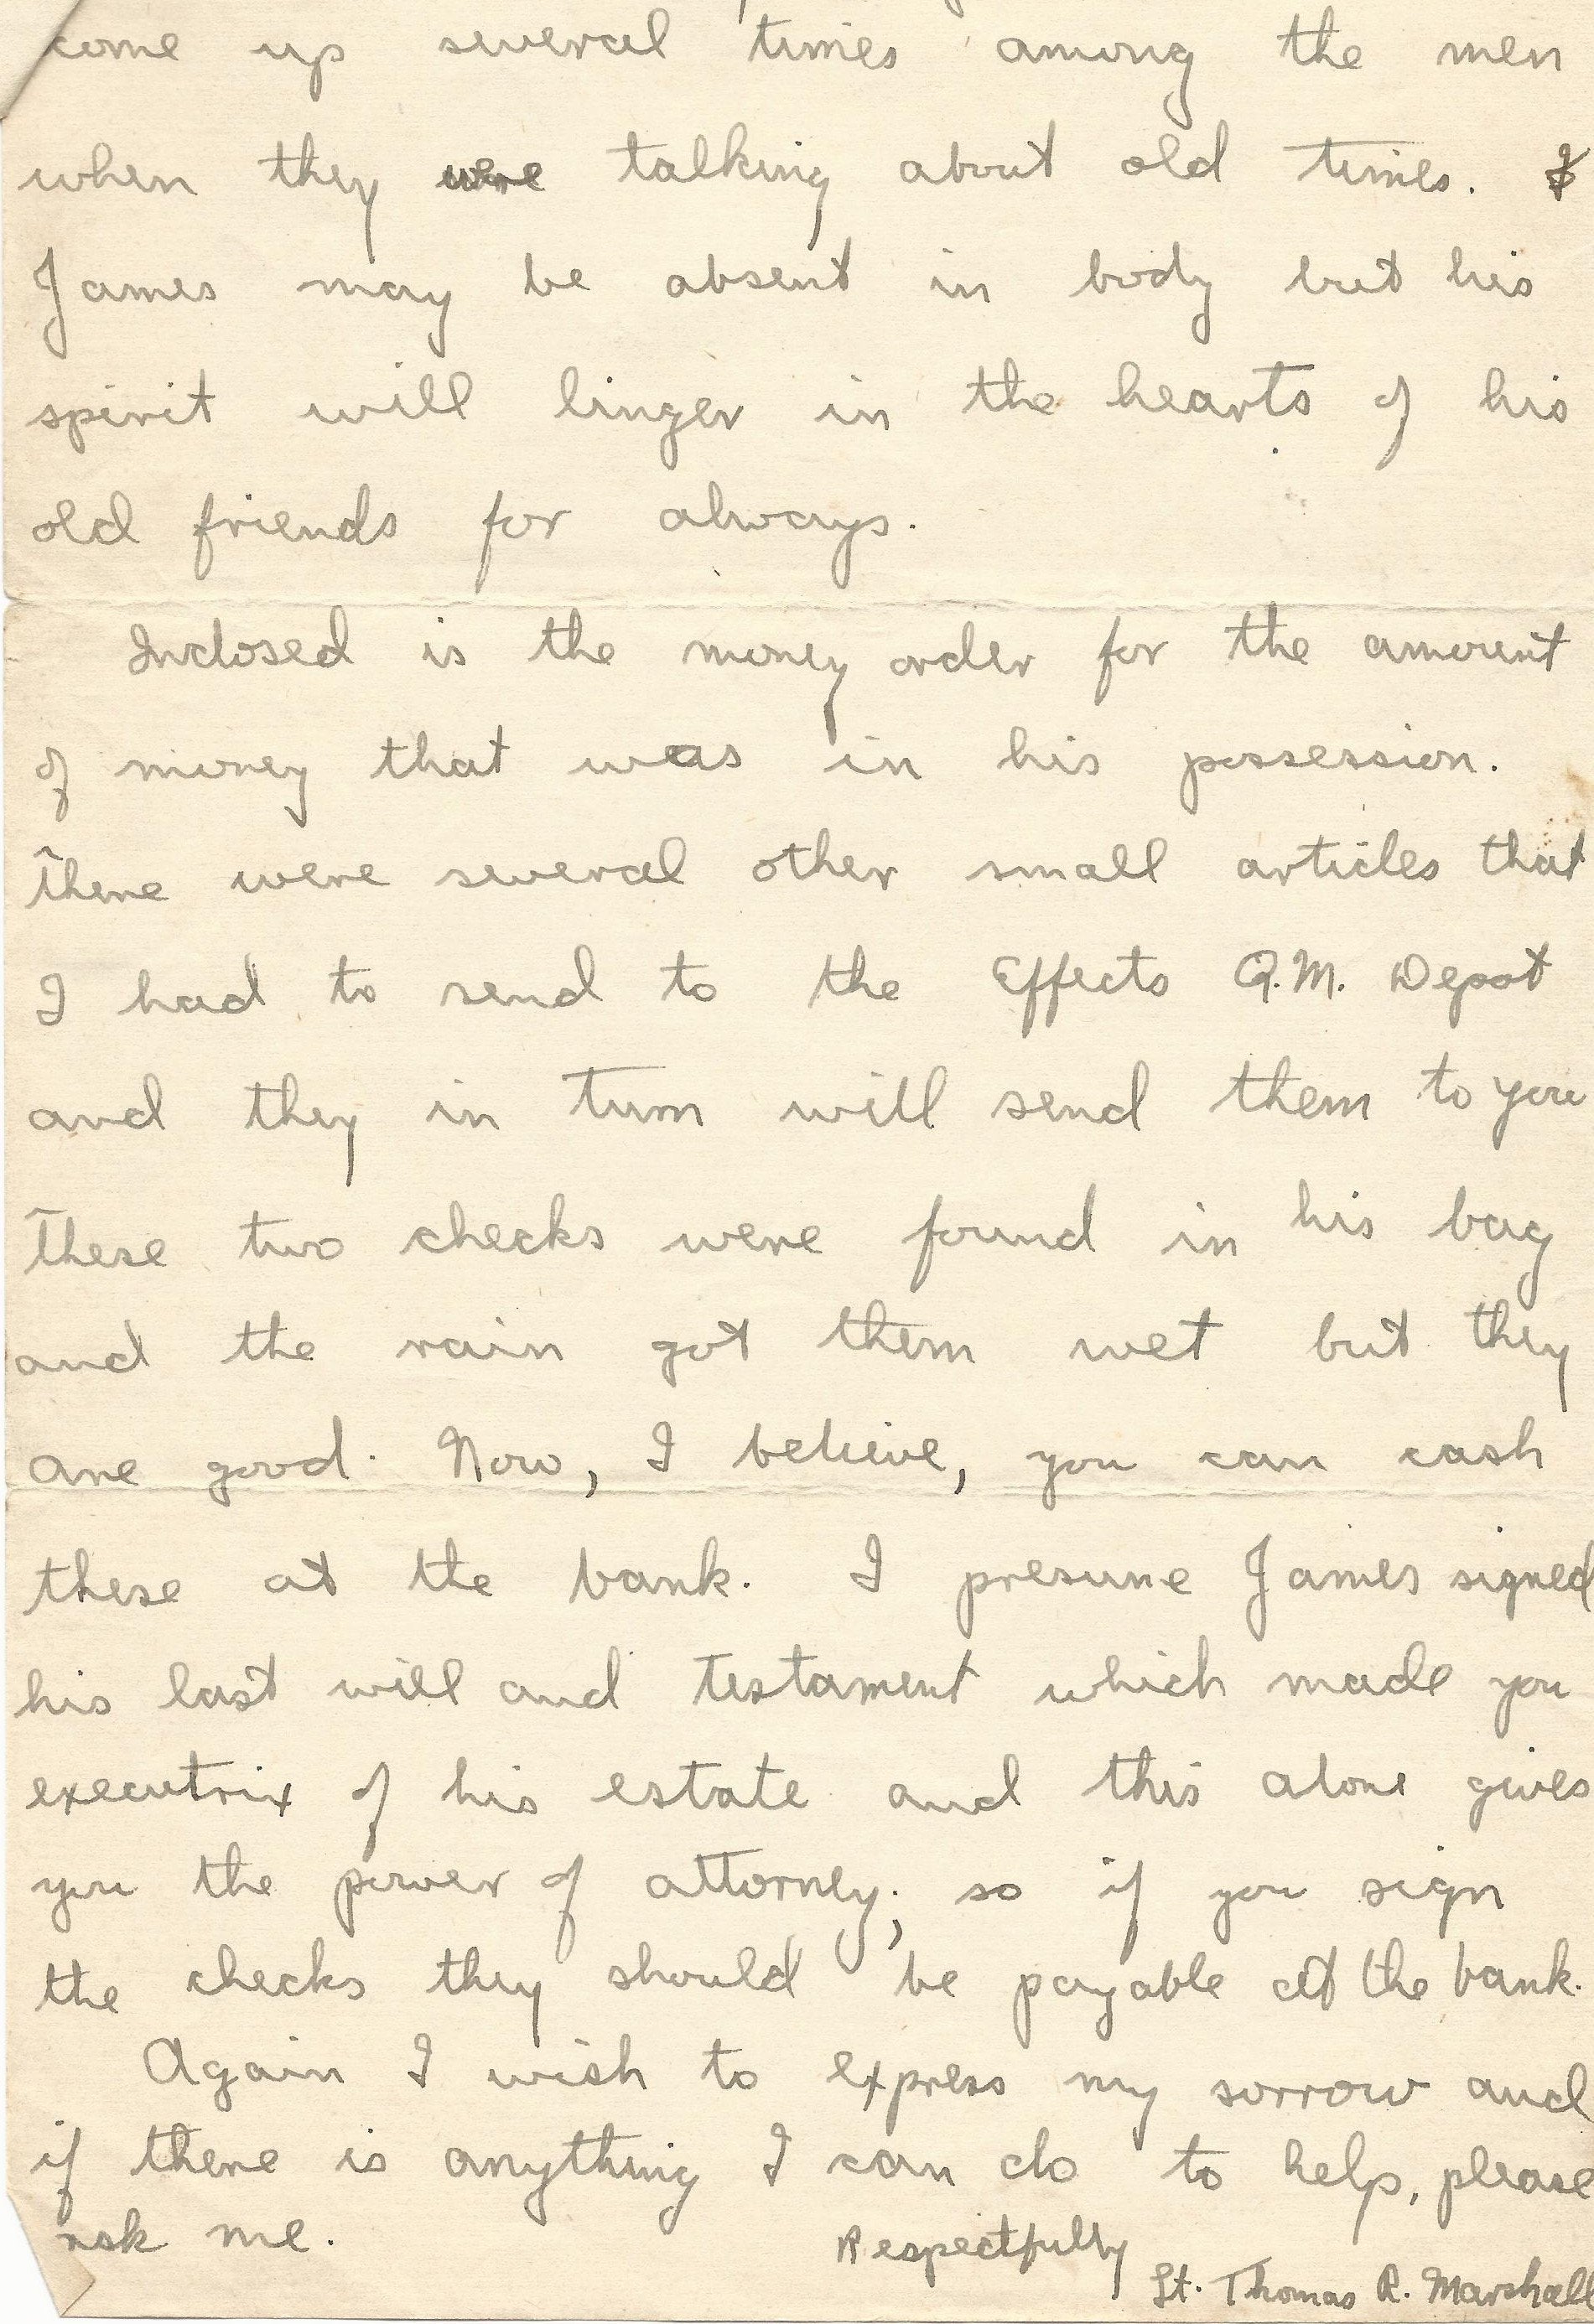 come up several times among the men
when they were talking about old times.
James may be absent in body but his
spirit will linger in the hearts of his
old friends for always.
Inclosed is the money order for the amount
of money that was in his possession.
There were several other small articles that
I had to send to the Effects Q.M. Depot
and they in turn will send them to you
These two checks were found in his bag
and the rain got them wet but they
are good. Now, I believe, you can cash
these at the bank. I presume James signed
his last will and testament which made you
executrix of his estate and this alone gives
you the power of attorney; so if you sign
the checks they should be payable at the bank.
Again I wish to express my sorrow and
if there is anything I can do to help, please
ask me.
Respectfully
Lt. Thomas R. Marshall